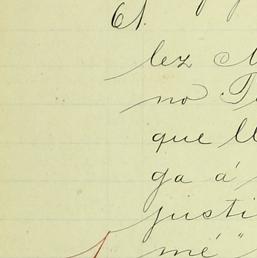 61.
lez
no
que
ga á
justi
mé"